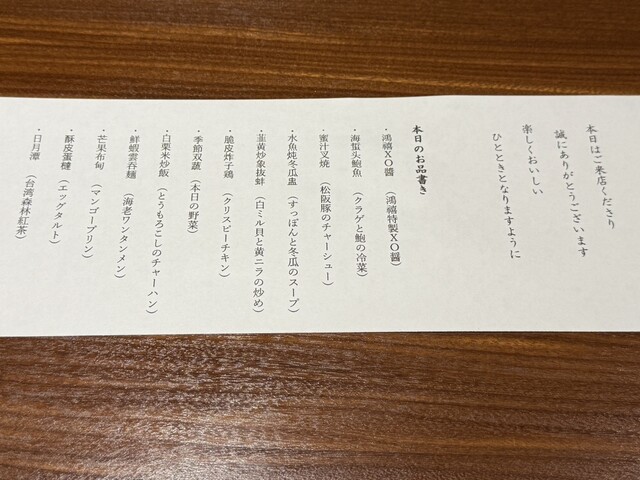 本日はご来店くださり
誠にありがとうございます
楽しくおいしい
ひとときとなりますように
本日のお品書き
・鴻禧XO醬（鴻禧特製XO醤）
・海蜇头鮑魚（クラゲと鮑の冷菜）
・蜜汁叉燒（松阪豚のチャーシュー）
・水魚炖冬瓜盅（すっぽんと冬瓜のスープ）
・韮黄炒象拔蚌（白ミル貝と黄ニラの炒め）
・脆皮炸子鶏（クリスピーチキン）
・季節双蔬（本日の野菜）
・白粟米炒飯（とうもろこしのチャーハン）
・鮮蝦雲吞麺（海老ワンタンメン）
・芒果布甸（マンゴープリン）
・酥皮蛋撻（エッグタルト）
・日月潭（台湾森林紅茶）